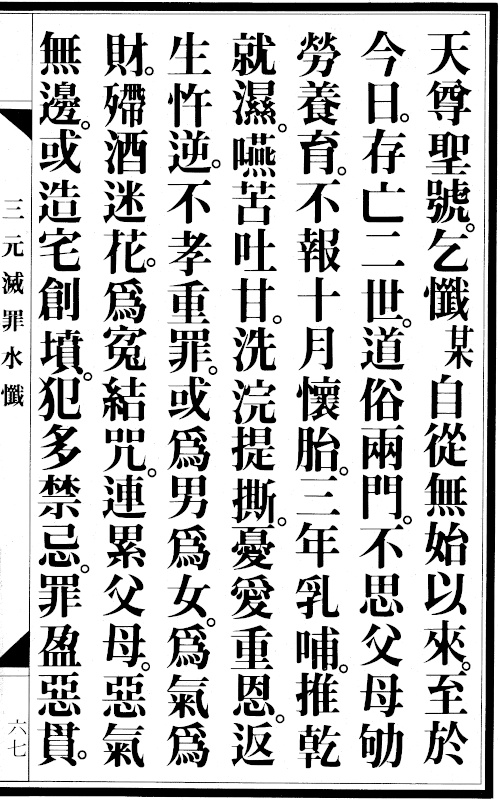 天尊聖號。乞懺某自從無始以來。至於
今日。存亡二世。道俗兩門。不思父母劬
勞養育。不報十月懷胎。三年乳哺。推乾
就濕。嚥苦吐甘。洗浣提撕。憂愛重恩。返
生忤逆。不孝重罪。或爲男爲女。爲氣爲
財。殢酒迷花。爲冤結咒。連累父母。惡氣
無邊。或造宅創墳。犯多禁忌。罪盈惡貫。
三元滅罪水懺
六七